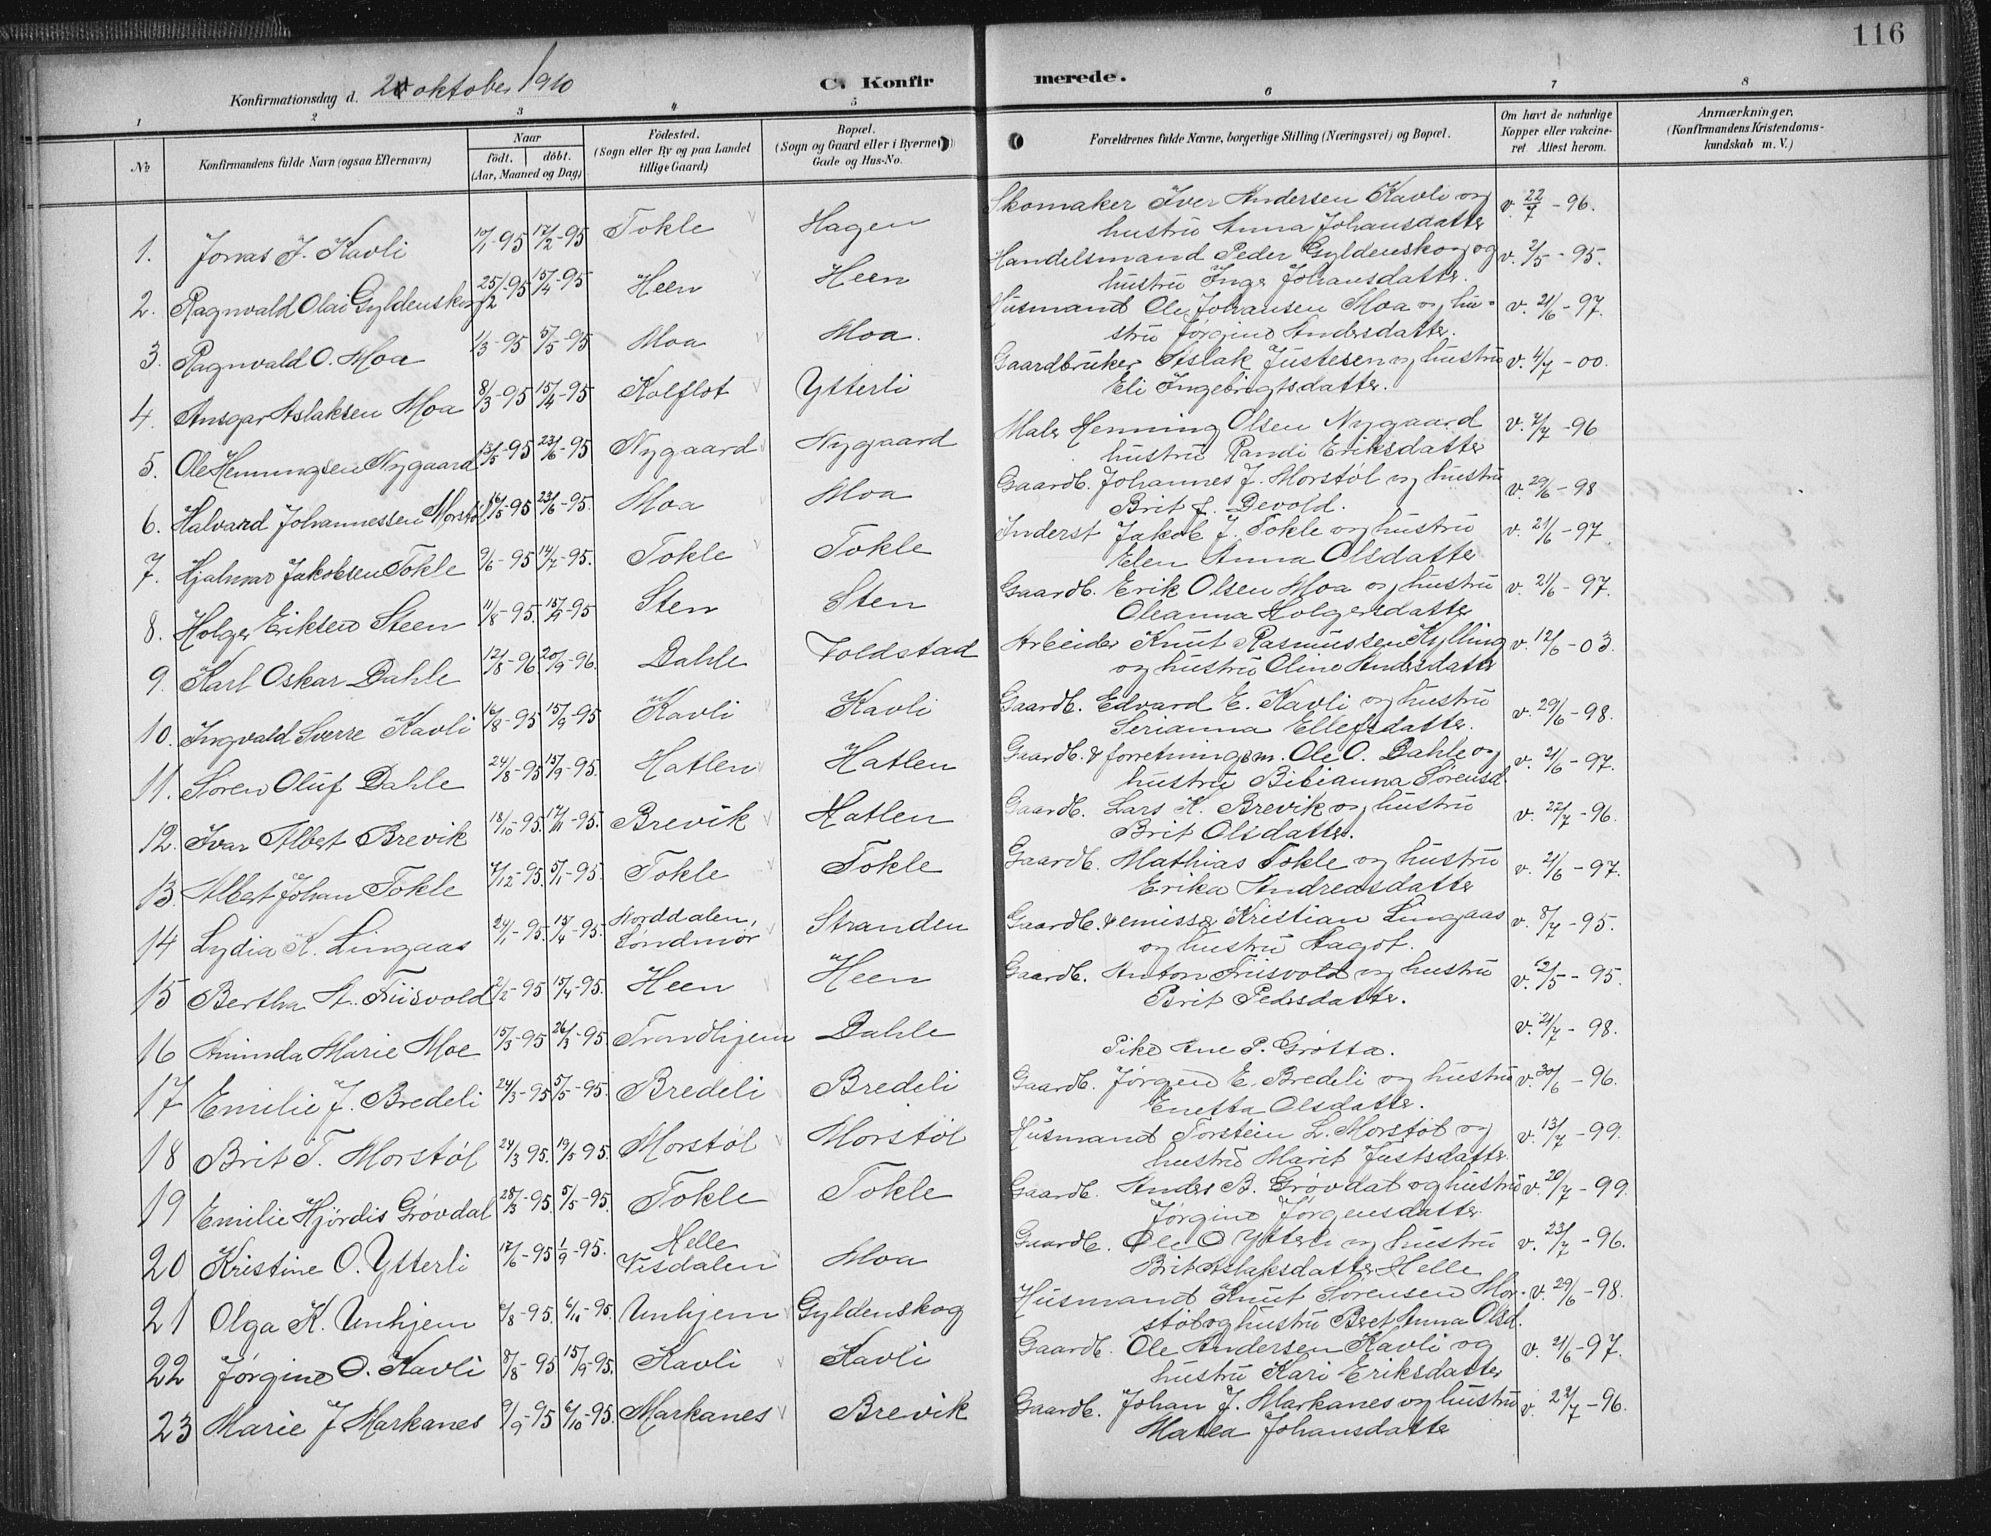 116
Konfirmationsdag d. 2 oktober 1910
C. Konfirmerede.
1 2 3 4 5 6 7 8
No
Konfirmandens fulde Navn (ogsaa Efternavn)
Naar
født. døbt.
(Aar, Maaned og Dag)
Fødested.
(Sogn eller By og paa Landet
tillige Gaard)
Bopæl.
(Sogn og Gaard eller i Byerne
Gade og Hus-No.
Forældrenes fulde Navne, borgerlige Stilling (Næringsvei) og Bopæl.
Om havt de naturlige
Kopper eller vakcine-
ret Attest herom.
Anmærkninger.
(Konfirmandens Kristendoms-
kundskab m. V.)
1. Jonas I. Kavli 10/1-95 17/2-95 Tokle Hagen Skomaker Iver Andersen Kavli og v. 22/7-96.
hustru Anna Johansdatter
2. Ragnvald Olai Gyldenskog 25/2-95 15/4-95 Heen Heen Handelsmand Peder Gyldenskog og v. 2/5-95.
hustru Inge Johansdatter.
3. Ragnvald O. Moa 1/3-95 5/5-95 Moa Moa. Husmand Ole Johansen Moa og hu- v. 21/6-97.
stru Jørgine Andersdatter.
4. Ansgar Aslaksen Moa 8/3-95 15/4-95 Kolflot Ytterli Gaardbruker Aslak Justesen og hustru v. 4/7-00.
Eli Ingebrigtsdatter.
5. Ole Henningsen Nygaard 13/5-95 23/6-95 Nygaard Nygaard Maler Henning Olsen Nygaard v. 2/7-96
hustru Randi Eriksdatter
6. Halvard Johannessen Morstøl 16/5-95 23/6-95. Moa Moa Gaardb. Johannes J. Morstøl og hustru v. 29/6-98
Brit f. Devold.
7. Hjalmar Jakobsen Tokle 9/6-95 14/7-95. Tokle Tokle Inderst Jakob J. Tokle og hustru v. 21/6-97.
Elen Anna Olsdatter
8. Holger Eriksen Steen 11/8-95. 15/9-95 Sten Sten Gaardb. Erik Olsen Moa og hustru v. 21/6-97.
Oleanna Holgersdatter
9. Karl Oskar Dahle 12/8-96. 20/9-96. Dahle Foldstad Arbeider Knut Rasmussen Kylling v. 12/6-03.
og hustru Oline Andersdatter
10. Ingvald Sverre Kavli 16/8-95 15/9-95 Kavli Kavli Gaardb. Edvard E. Kavli og hustru v. 29/6-98.
Serianna Ellefsdatter.
11. Søren Oluf Dahle 24/8-95 15/9-95. Hatlen Hatlen Gaardb. & forretningsm. Ole O. Dahle og v. 21/6-97.
hustru Bibianna Sørensd.
12. Ivar Albert Brevik 18/10-95. 17/11-95. Brevik Hatlen Gaardb. Lars K. Brevik og hustru v. 22/7-96.
Brit Olsdatter.
13. Albert Johan Tokle 7/12-95. 5/1-95. Tokle Tokle Gaardb. Mathias Tokle og hustru v. 21/6-97.
Erika Andreasdatter
14 Lydia K. Lingaas 24/1-95. 15/4-95. Norddalen, Søndmør Stranden Gaardb. & emissær Kristian Lingaas v. 8/7-95.
og hustru Aagot.
15 Bertha A. Friisvold 2/2-95 15/4-95. Heen Heen Gaardb. Anton Friisvold og hustru v. 12/5-95.
Brit Pedersdatter.
16 Aminda Marie Moe 15/3-95 26/3-95 Trondhjem Dahle Pike Ane P. Grøtta. v. 21/7-98.
17 Emilie J. Bredeli 24/3-95 5/5-95. Bredeli Bredeli Gaardb. Jørgen E. Bredeli og hustru v. 30/6-96.
Enetta Olsdatter.
18 Brit T. Morstøl 24/3 95. 19/5 95. Morstøl Morstøl Husmand Torstein L. Morstøl og v. 13/7-99.
hustru Marit Justsdatter.
19 Emilie Hjørdis Grøvdal 28/3-95 5/5-95. Tokle Tokle Gaardb. Anders B. Grøvdal og hustru v. 20/7-99.
Jørgine Jørgensdatter
20 Kristine O. Ytterli 17/6-95 1/9-95. Helle Visdalen Moa Gaardb. Ole O Ytterli og hustru v. 23/7-96.
Brit Aslaksdatter Helle
21 Olga K. Unhjem 6/8-95. 6/10-95. Unhjem Gyldenskog Husmand Knut Sørensen Mor- v. 29/6-98.
støl og hustru Beret Anna Olsd.
22 Jørgine O. Kavli 8/8-95 15/9-95. Kavli Kavli Gaardb. Ole Andersen Kavli og v. 21/6-97.
hustru Kari Eriksdatter
23 Marie J Markanes 9/9-95 6/10-95. Markanes Brevik Gaardb. Johan J. Markanes og hustru v. 22/7-96.
Matea Johansdatter